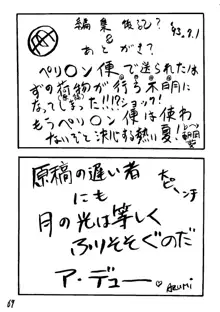 編集後記?
&
あとがき?
'93.9.1
ペリ〇ン便で送られたは
ずの荷物が行方不明に
なってしまった!!!?ショック!
もうペリ〇ン便は使わ
ないぞと決心する熱い夏!
原稿の遅い者
にも
月の光は等しく
ふりそそぐのだ
ア・デュー
大ピーンチ
AZUMI
69